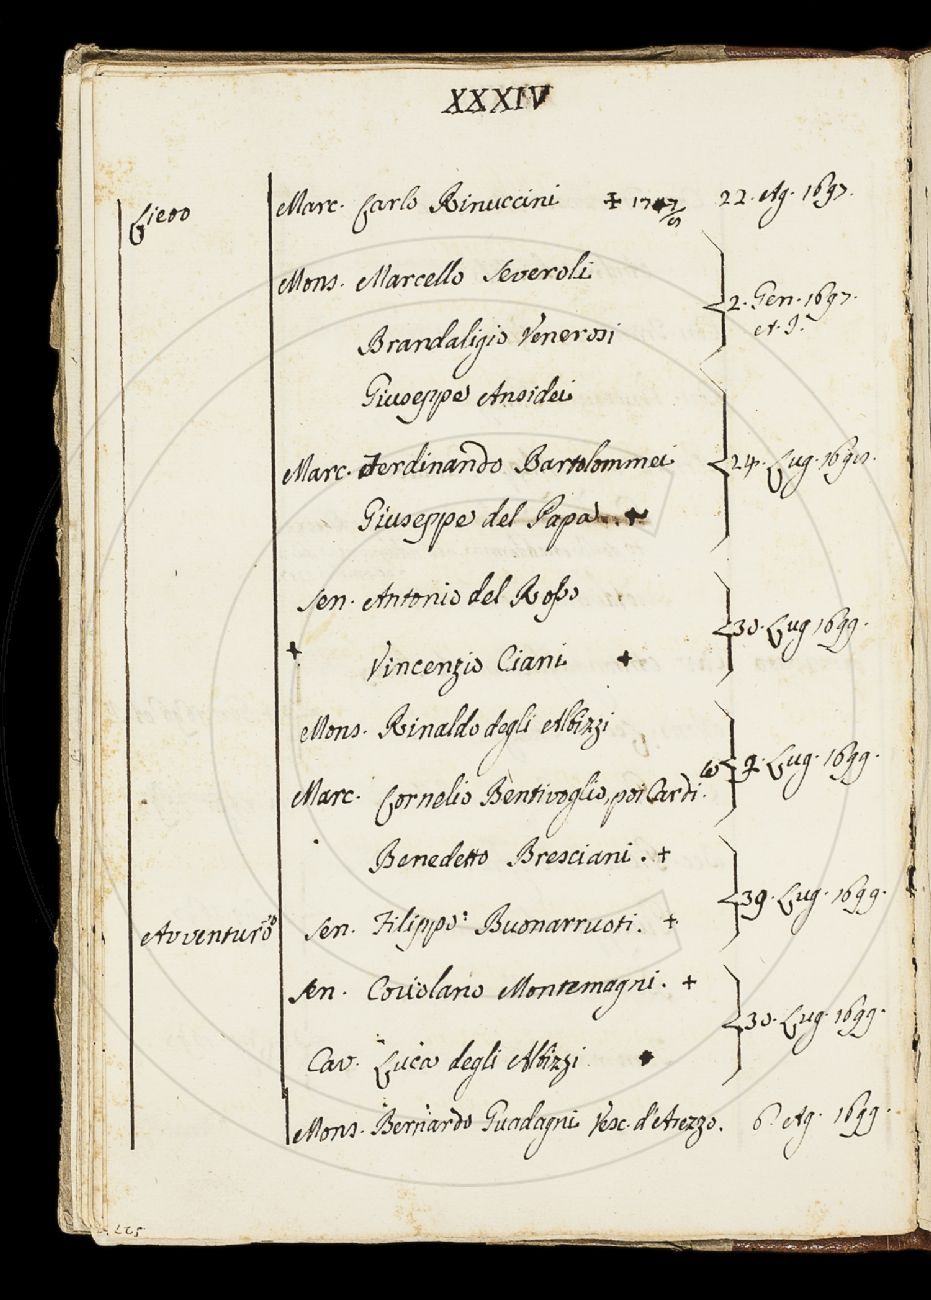 XXXIV
Lieto Marc. Carlo Rinuccini + 17 22. Ag. 1697.
Mons. Marcello Severoli
2. Gen. 1697.
Brandaligio Venerosi
Giuseppe Ansidei
Marc. Ferdinando Bartolommei 24. Lug.
Giuseppe del Papa +
Sen. Antonio del Rosso
30. Lug 1699.
+ Vincenzio Ciani +
Mons. Rinaldo degli Albizzi
9. Lug. 1699.
Marc. Cornelio Bentivoglio, poi Cardi.
Benedetto Bresciani. +
Lug. 1699.
Avventur.o Sen. Filippo Buonarruoti. +
Sen. Coriolano Montemagni. +
30. Lug. 1699.
Cav. Luca degli Albizzi +
Mons. Bernardo Guadagni Vesc. d'Arezzo. 6. Ag. 1699.
225